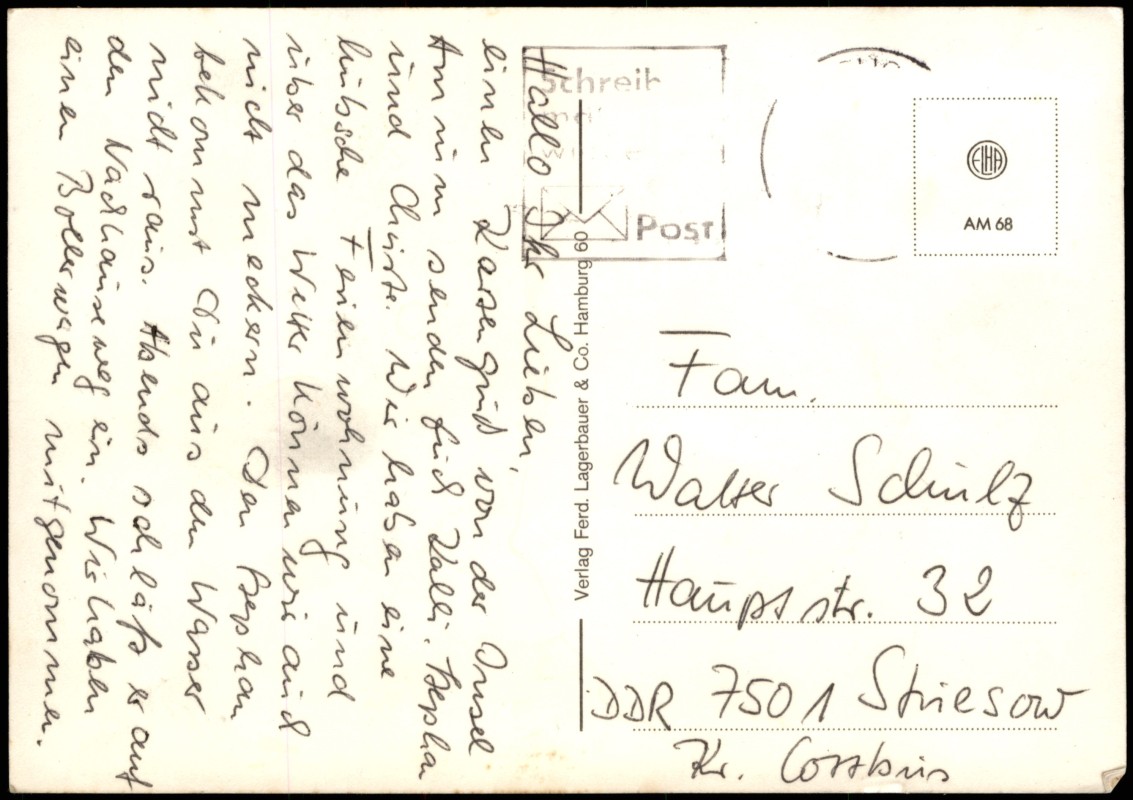 Hallo Ihr Lieben,
einen Kartengruß von der Insel
Amrum senden Euch Kalli, Stephan
und Christe. Wir haben eine
hübsche Ferienwohnung und
über das Wetter können wir auch
nicht meckern. Den Stephan
bekommst Du aus dem Wasser
nicht raus. Abends schläft er auf
dem Nachhauseweg ein. Wir haben
einen Bollerwagen mitgenommen.
Schreib
mal
Post
Verlag Ferd. Lagerbauer & Co. Hamburg 60
ELHA
AM 68
Fam.
Walter Schulz
Hauptstr. 32
DDR 7501 Striesow
Kr. Cottbus